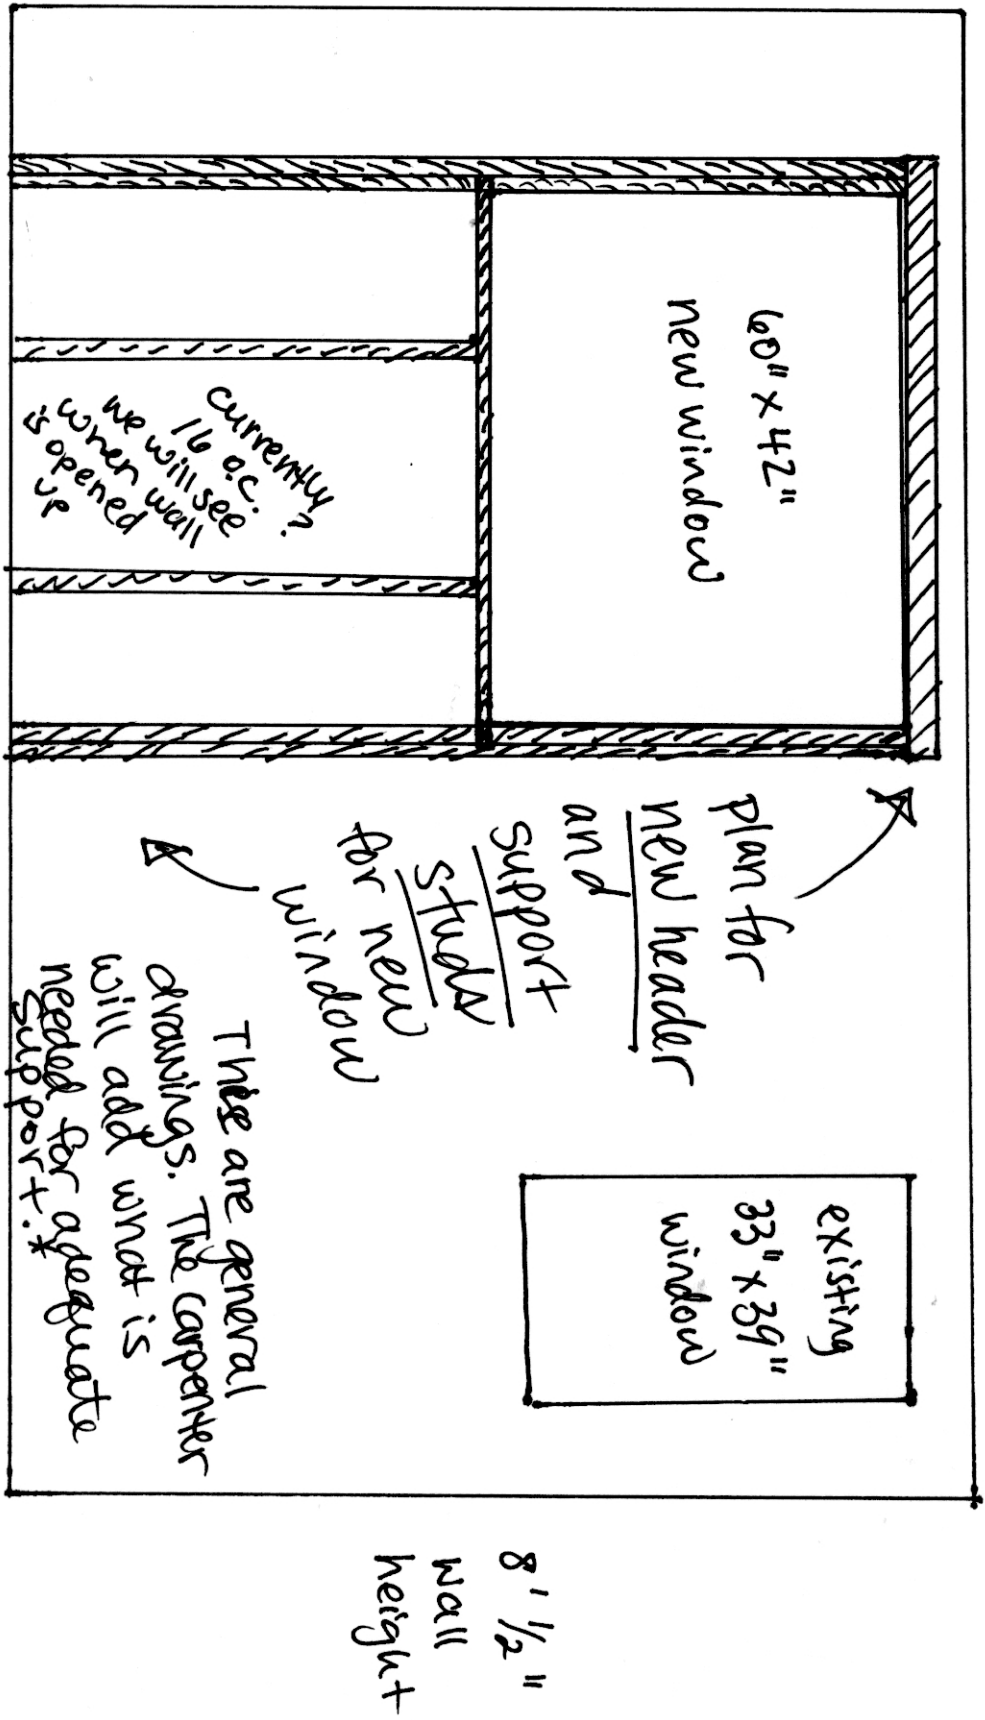 60" x 42"
new window
currently
16 o.c. ?
we will see
when wall
is opened
up
plan for
new header
and
support
studs
for new
window
existing
33" x 39"
window
These are general
drawings. The carpenter
will add what is
needed for adequate
support.*
8' 1/2"
wall
height